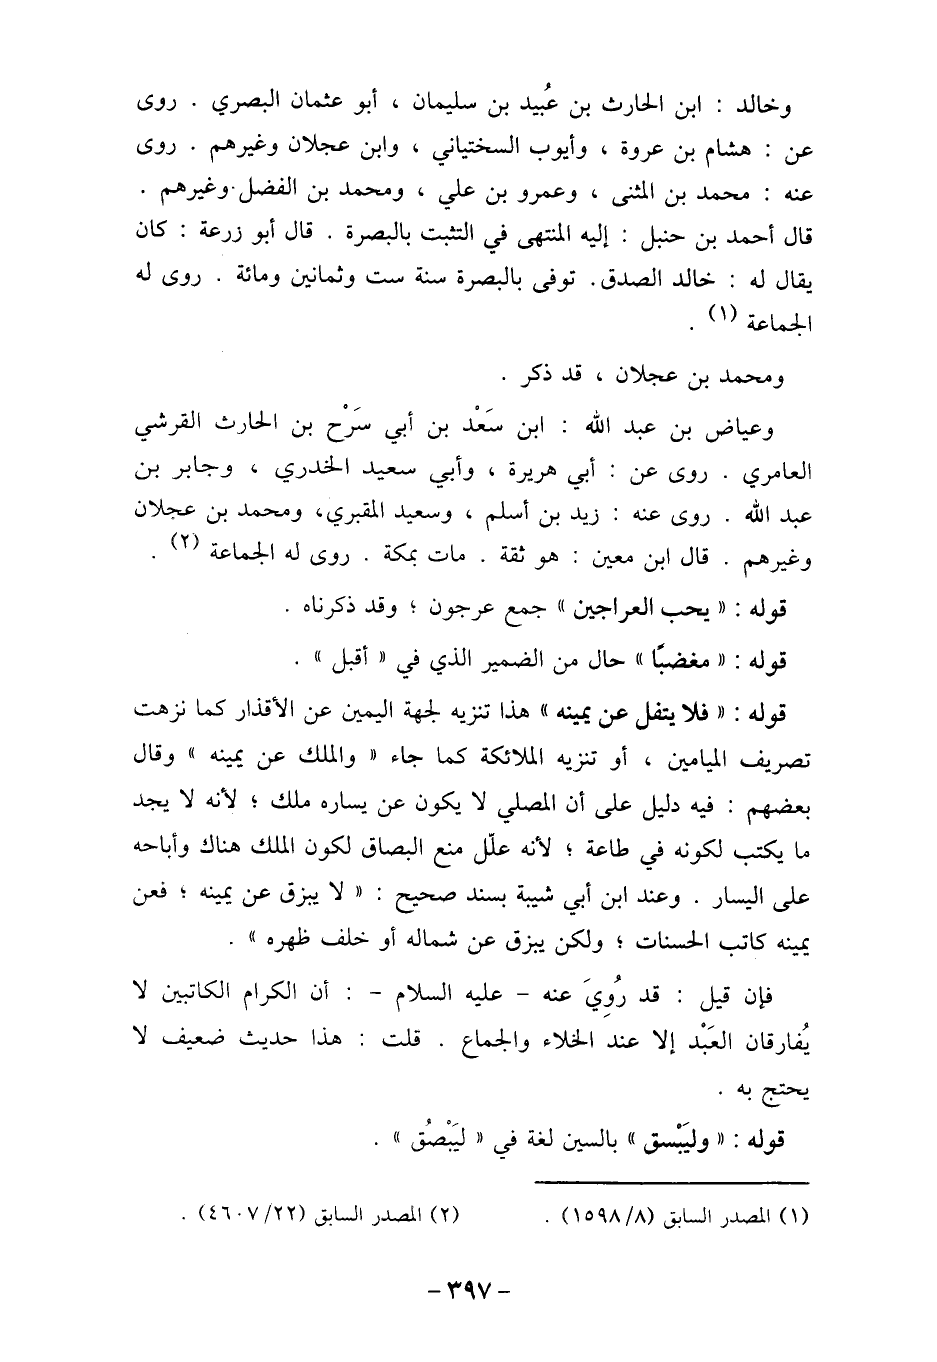 وخالد : ابن الحارث بن عُبيد بن سليمان ، أبو عثمان البصري . روى
عن : هشام بن عروة ، وأيوب السختياني ، وابن عجلان وغيرهم . روى
عنه : محمد بن المثنى ، وعمرو بن علي ، ومحمد بن الفضل وغيرهم .
قال أحمد بن حنبل : إليه المنتهى في التثبت بالبصرة . قال أبو زرعة : كان
يقال له : خالد الصدق. توفى بالبصرة سنة ست وثمانين ومائة . روى له
الجماعة (١) .
ومحمد بن عجلان ، قد ذكر .
وعياض بن عبد الله : ابن سَعْد بن أبي سَرْح بن الحارث القرشي
العامري . روى عن : أبي هريرة ، وأبي سعيد الخدري ، وجابر بن
عبد الله . روى عنه : زيد بن أسلم ، وسعيد المقبري، ومحمد بن عجلان
وغيرهم . قال ابن معين : هو ثقة . مات بمكة . روى له الجماعة (٢) .
قوله : « يحب العراجين » جمع عرجون ؛ وقد ذكرناه .
قوله : « مغضبًا » حال من الضمير الذي في « أقبل » .
قوله : « فلا يتفل عن يمينه » هذا تنزيه لجهة اليمين عن الأقذار كما نزهت
تصريف الميامين ، أو تنزيه الملائكة كما جاء « والملك عن يمينه » وقال
بعضهم : فيه دليل على أن المصلي لا يكون عن يساره ملك ؛ لأنه لا يجد
ما يكتب لكونه في طاعة ؛ لأنه علّل منع البصاق لكون الملك هناك وأباحه
على اليسار . وعند ابن أبي شيبة بسند صحيح : « لا يبزق عن يمينه ؛ فعن
يمينه كاتب الحسنات ؛ ولكن يبزق عن شماله أو خلف ظهره » .
فإن قيل : قد رُوِيَ عنه – عليه السلام – : أن الكرام الكاتبين لا
يُفارقان العَبْد إلا عند الخلاء والجماع . قلت : هذا حديث ضعيف لا
يحتج به .
قوله : « وليَبْسق » بالسين لغة في « ليَبْصُق » .
(١) المصدر السابق (١٥٩٨/٨) . (٢) المصدر السابق (٤٦٠٧/٢٢) .
- ٣٩٧ -